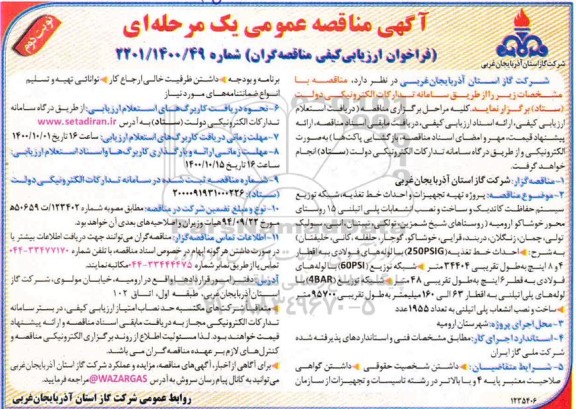 نوبت دوم
آگهی مناقصه عمومی یک مرحله‌ای
(فراخوان ارزیابی کیفی مناقصه‌گران) شماره ۲۲۰۱/۱۴۰۰/۴۹
شرکت گاز استان آذربایجان‌غربی
شرکت گاز استان آذربایجان‌غربی در نظر دارد، مناقصه با
مشخصات زیر را از طریق سامانه تدارکات الکترونیکی دولت
(ستاد) برگزار نمایند. کلیه مراحل برگزاری مناقصه از دریافت استعلام
ارزیابی کیفی، ارائه اسناد ارزیابی کیفی، دریافت مابقی اسناد مناقصه، ارائه
پیشنهاد قیمت، مهر و امضای اسناد مناقصه و بازگشایی پاکت‌ها) به‌صورت
الکترونیکی و از طریق درگاه سامانه تدارکات الکترونیکی دولت (ستاد) انجام
خواهد گرفت.
۱- مناقصه‌گزار: شرکت گاز استان آذربایجان‌غربی
۲- موضوع مناقصه: پروژه تهیه تجهیزات و احداث خط تغذیه، شبکه توزیع
سیستم حفاظت کاتدیک و ساخت و نصب انشعابات پلی اتیلنی ۱۵ روستای
محور خوشاکو ارومیه (روستاهای شیخ شمزین،
تولی، چمان، زنگلان، دربند، قرایی، خوشاکو، گوجار، حفله، کانی،
به‌شرح: احداث خط تغذیه (250PSIG) با لوله‌های فولادی به قطار
۴ و ۸ اینچ به‌طول تقریبی ۳۴۴۰۴ متر شبکه توزیع (60PSI) با لوله‌های
فولادی به قطر ۶ اینچ به‌طول تقریبی ۴۸ متر شبکه توزیع (4BAR) با
لوله‌های پلی اتیلنی به اقطار ۶۳ الی ۱۶۰ میلیمتر به‌طول تقریبی ۹۵۷۰۰ متر
ساخت و نصب انشعاب پلی اتیلنی به تعداد ۱۹۵۵ عدد
۳- محل اجرای پروژه: شهرستان ارومیه
۴- استاندارد اجرای کار: مطابق مشخصات فنی و استانداردهای پذیرفته شده
شرکت ملی گاز ایران
۵- شرایط متقاضیان: داشتن شخصیت حقوقی داشتن گواهی
صلاحیت معتبر پایه ۴ و یا بالاتر در رشته تاسیسات و تجهیزات از سازمان
برنامه و بودجه داشتن ظرفیت خالی ارجاع کار توانائی تهیه و تسلیم
انواع ضمانتنامه‌های مورد نیاز
۶- نحوه دریافت کاربرگ‌های استعلام ارزیابی: از طریق درگاه سامانه
تدارکات الکترونیکی دولت (ستاد) به آدرس www.setadiran.ir
۷- مهلت زمانی دریافت کاربرگ‌های استعلام ارزیابی: ساعت ۱۶ تاریخ ۱۴۰۰/۱۰/۰۱
۸- مهلت زمانی ارائه و بارگذاری کاربرگ‌ها و اسناد استعلام ارزیابی:
ساعت ۱۶ تاریخ ۱۴۰۰/۱۰/۱۵
۹- شماره مناقصه ثبت شده در سامانه تدارکات الکترونیکی دولت
(ستاد): ۲۰۰۰۰۹۱۹۳۱۰۰۰۲۳۶
۱۰- نوع و مبلغ تضمین شرکت در مناقصه: مطابق مصوبه شماره ۱۲۳۴۰۲/ت ۵۰۶۵۹ ه‍
مورخ ۹۴/۰۹/۲۲ هیات وزیران و اصلاحیه‌های بعدی آن خواهد بود.
۱۱- اطلاعات تماس مناقصه‌گزار: مناقصه‌گران می‌توانند جهت دریافت اطلاعات بیشتر یا
در صورت داشتن هرگونه ابهام در خصوص اسناد مناقصه، با تلفن ۳۳۴۷۷۱۷۰-۰۴۴
تماس یا از طریق نمابر شماره ۳۳۴۴۴۴۷۵-۰۴۴ مکاتبه نمایند.
آدرس: دفتر امور قراردادها واقع در ارومیه، خیابان مولوی، شرکت گاز
استان آذربایجان غربی، طبقه اول، اتاق ۱۰۲
متقاضیان شرکت‌کننده پس از کسب حد نصاب امتیاز ارزیابی کیفی، در بستر سامانه
تدارکات الکترونیکی مجاز به دریافت مابقی اسناد مناقصه و ارائه پیشنهاد
قیمت خواهند بود. لذا مسئولیت اطلاع از روند برگزاری مناقصه الکترونیکی و
کنترل‌های لازم بر عهده مناقصه‌گران می‌باشد.
برای آگاهی از اخبار، آگهی‌های مناقصه، مزایده و عملکرد شرکت گاز استان آذربایجان‌غربی
می‌توانید به کانال پیام رسان سروش به آدرس @WAZARGAS مراجعه فرمایید.
۱۲۳۵۴۰۶
روابط عمومی شرکت گاز استان آذربایجان‌غربی